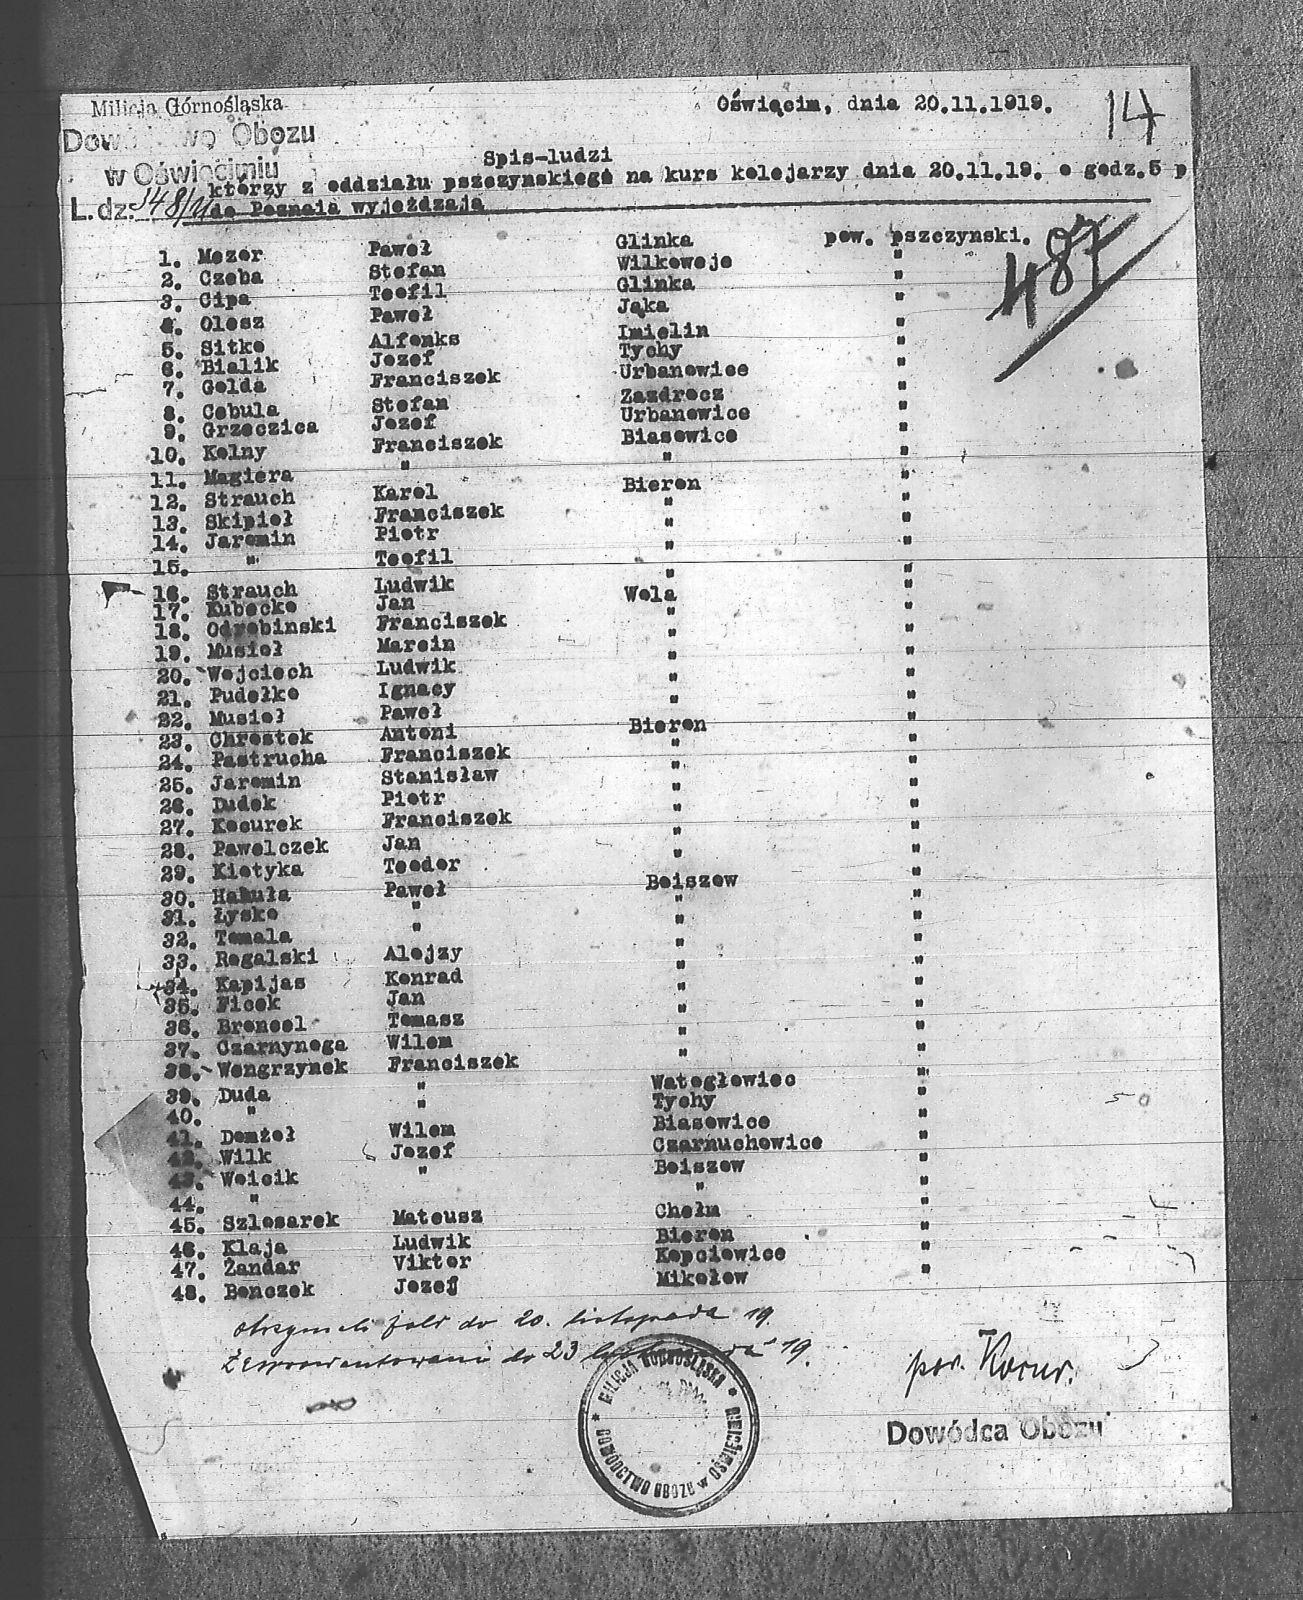 Milicja Górnośląska
Oświęcim, dnia 20.11.1919.
14
Obozu
w Oświęcimiu
Spis-ludzi
którzy z oddziału pszczynskiego na kurs kolejarzy dnia 20.11.19. o godz.5 p
L.dz. do Poznaia wyjeżdzają
487
1. Mozor Paweł Glinka pow. pszczynski.
2. Czoba Stefan Wilkowoje "
3. Cipa Teofil Glinka "
4. Olosz Paweł Jąka "
5. Sitko Alfonks Imielin "
6. Bialik Jozef Tychy "
7. Golda Franciszek Urbanowice "
8. Cobula Stefan Zazdrocz "
9. Grzoczica Jozef Urbanowice "
10. Kolny Franciszek Biasowice "
11. Magiera " " "
12. Strauch Karol Bieron "
13. Skipioł Franciszek " "
14. Jaromin Piotr " "
15. " Teofil " "
16. Strauch Ludwik " "
17. Kubocko Jan Wola "
18. Odrobinski Franciszek " "
19. Musioł Marcin " "
20. Wojciech Ludwik " "
21. Pudołko Ignacy " "
22. Musioł Paweł " "
23. Chrostok Antoni Bieron "
24. Pastrucha Franciszek " "
25. Jaromin Stanisław " "
26. Dudok Piotr " "
27. Kocurek Franciszek " "
28. Pawelczek Jan " "
29. Kiotyka Teodor " "
30. Hakuła Paweł Boiszow "
31. Łysko " " "
32. Tomala " " "
33. Rogalski Alojzy " "
34. Kapijas Konrad " "
35. Ficok Jan " "
36. Broncol Tomasz " "
37. Czarnynoga Wilom " "
38. Wongrzynok Franciszek " "
39. Duda " Watogłowiec "
40. " " Tychy "
41. Domżoł Wilom Biasowice "
42. Wilk Jozef Czarnuchowice "
43. Woicik " Boiszow "
44. " " "
45. Szlosarek Mateusz Chołm "
46. Klaja Ludwik Bieron "
47. Żandar Viktor Kopciowice "
48. Bonczok Jozef Mikołow "
otrzymali żołd do 20. listopada 19.
Zaprowiantowani do 23 19.
pow. Kocur.
Dowódca Obozu
MILICJA GÓRNOŚLĄSKA * DOWÓDCTWO OBOZU W OŚWIĘCIMIU *